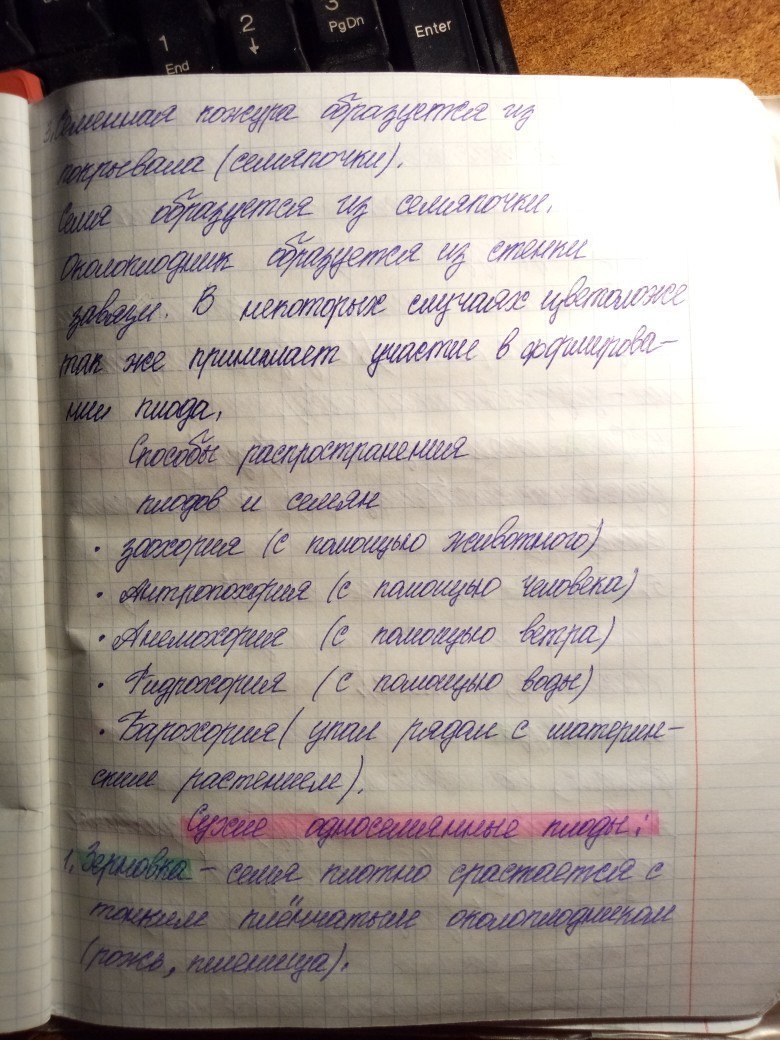 1
End
2
3
PgDn
Enter
Семенная кожура образуется из
покрывала (семяпочки).
Семя образуется из семяпочки.
Околоплодник образуется из стенки
завязи. В некоторых случаях цветоложе
так же принимает участие в формирова-
нии плода.
Способы распространения
плодов и семян
• Зоохория (с помощью животного)
• Антропохория (с помощью человека)
• Анемохория (с помощью ветра)
• Гидрохория (с помощью воды)
• Барохория (упал рядом с материн-
ским растением).
Сухие односемянные плоды:
1. Зерновка - семя плотно срастается с
тонким плёнчатым околоплодником
(рожь, пшеница).